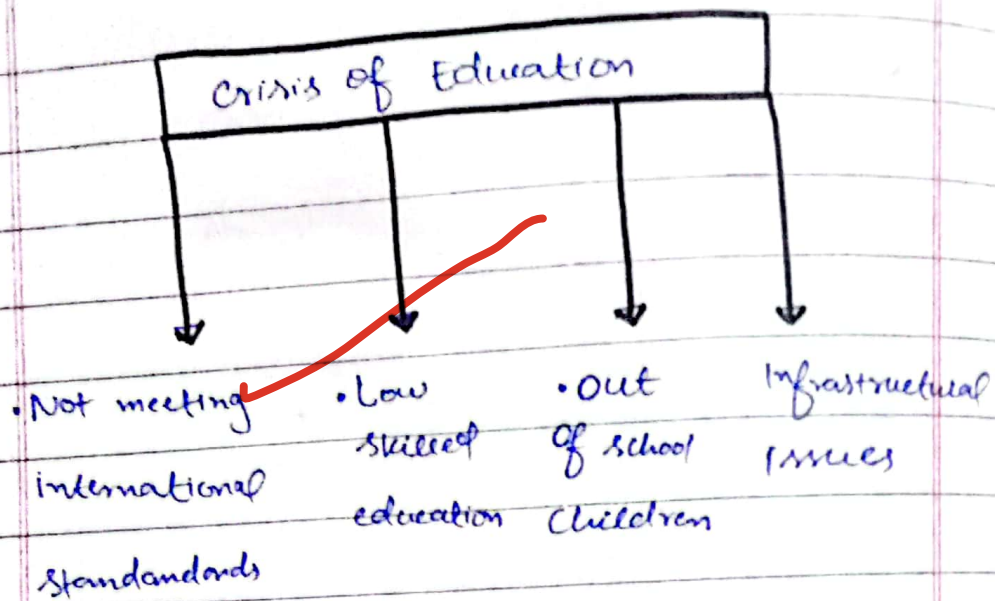 Crisis of Education
• Not meeting
international
standandands
• Low
skilled
education
• Out
of school
Children
Infrastructural
Issues